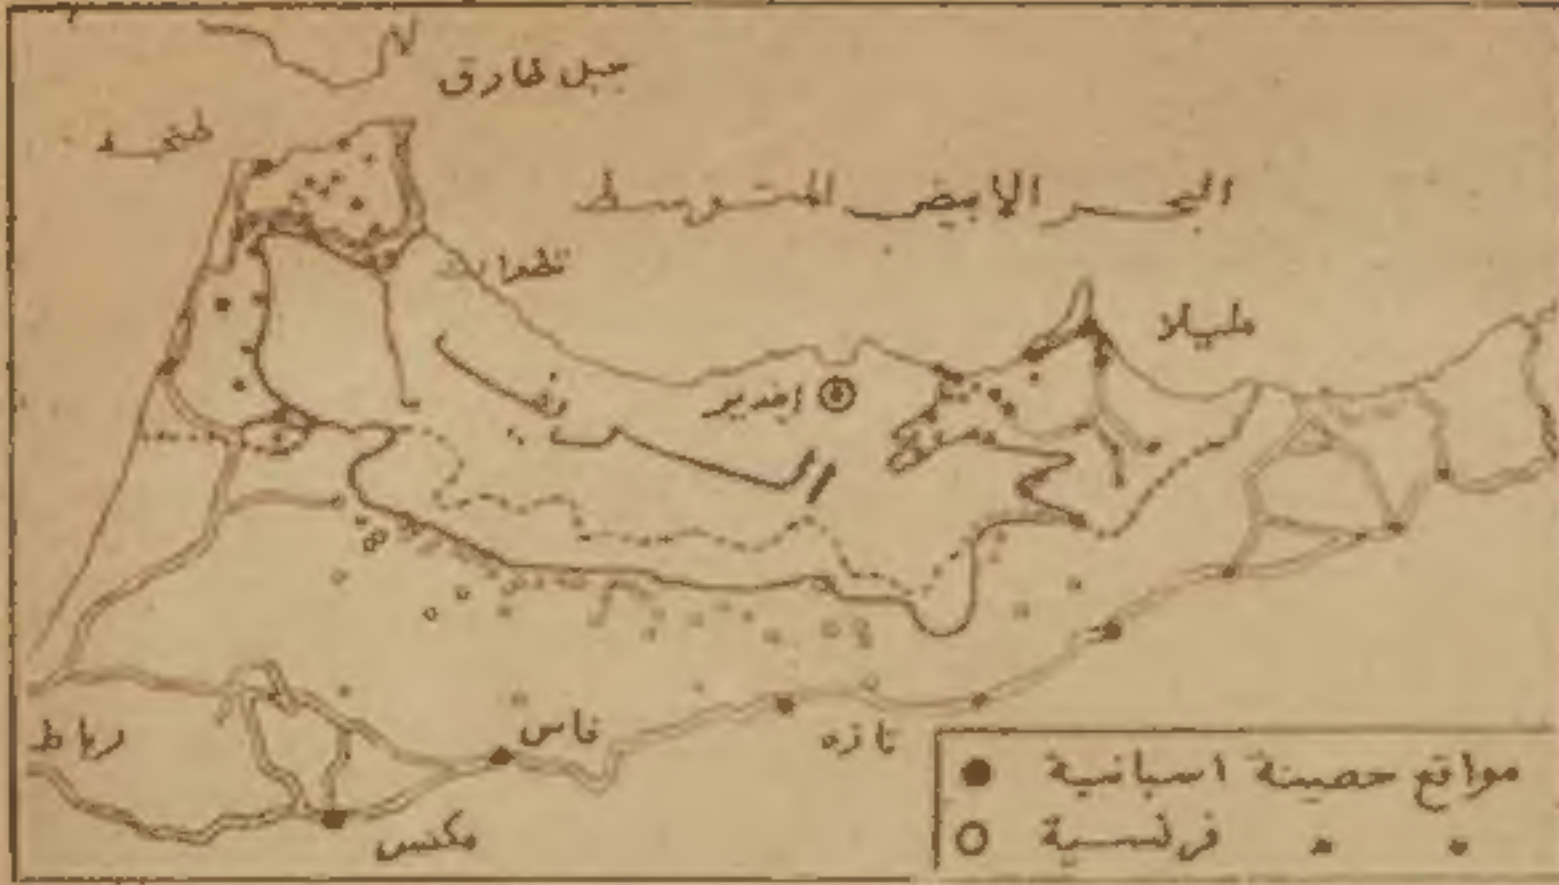 جبل طارق
طنجه
البحر الابيض المتوسط
تطوان
مليلا
اجدير
الريف
رباط
فاس
تازه
مكنس
مواقع حصينة اسبانية
" " فرنسية